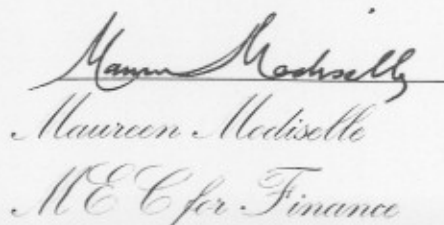 Maureen Modiselle
Maureen Modiselle
MEC for Finance